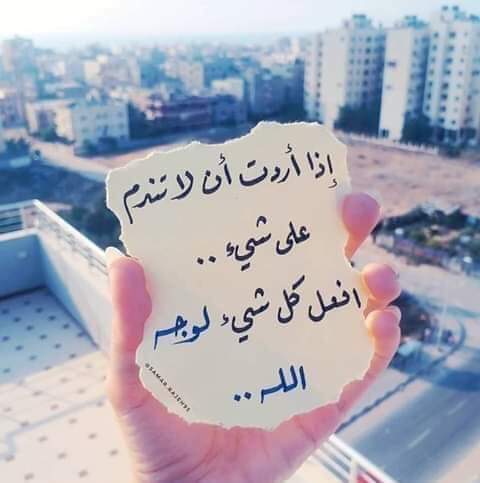 إذا أردت أن لا تندم
على شيء ..
افعل كل شيء لوجه
الله ..
@SAMAR.RAJEH95